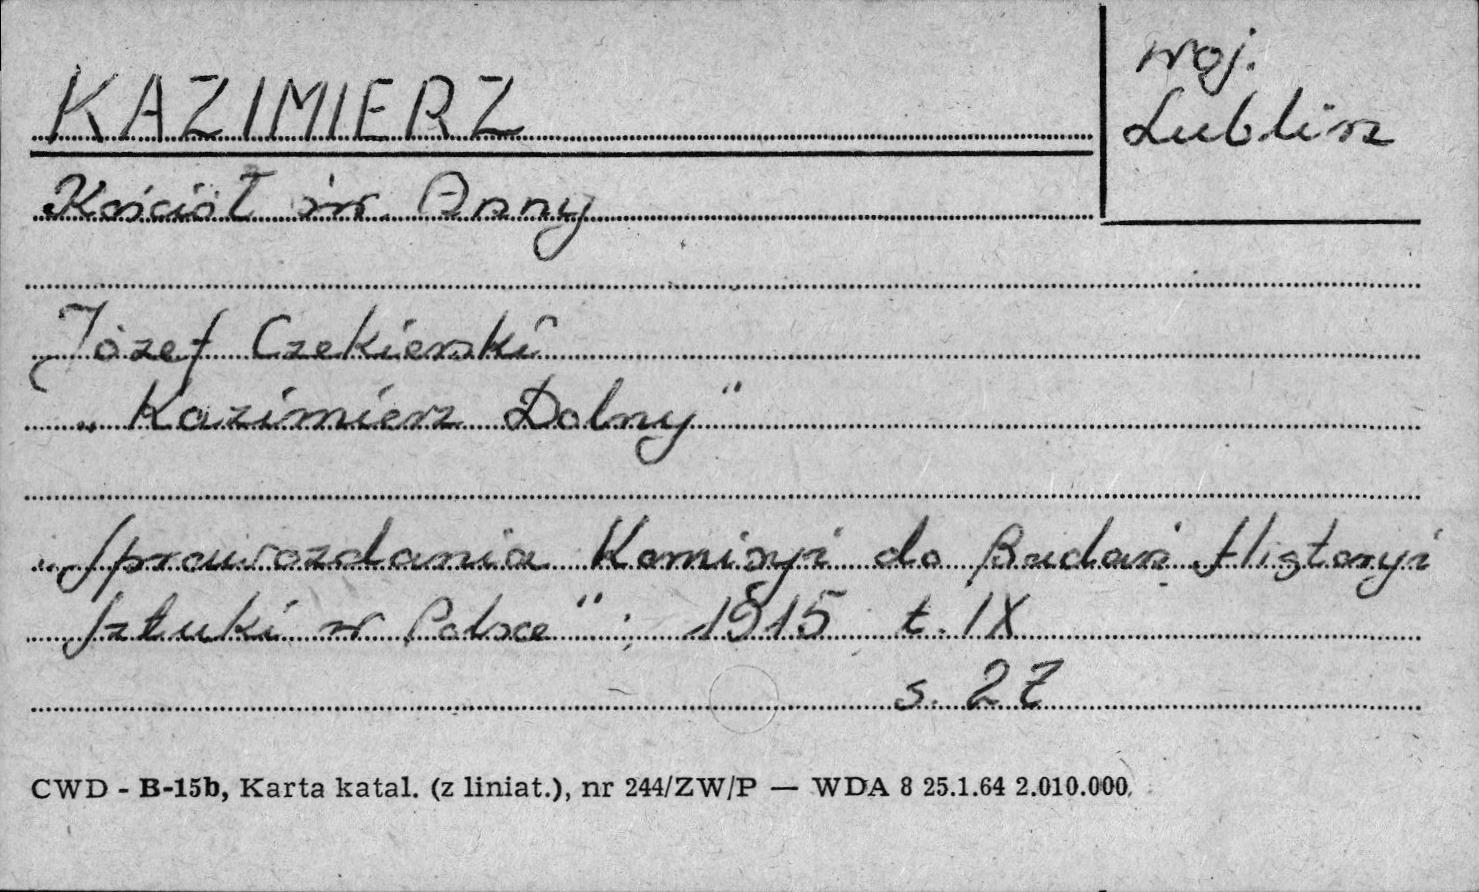 KAZIMIERZ
woj.
Lublin
Kościół św. Anny
Józef Czekierski
„Kazimierz Dolny"
„Sprawozdania Komisyi do Badań Historyi
Sztuki w Polsce"; 1915 t. IX
s. 27
CWD - B-15b, Karta katal. (z liniat.), nr 244/ZW/P — WDA 8 25.1.64 2.010.000